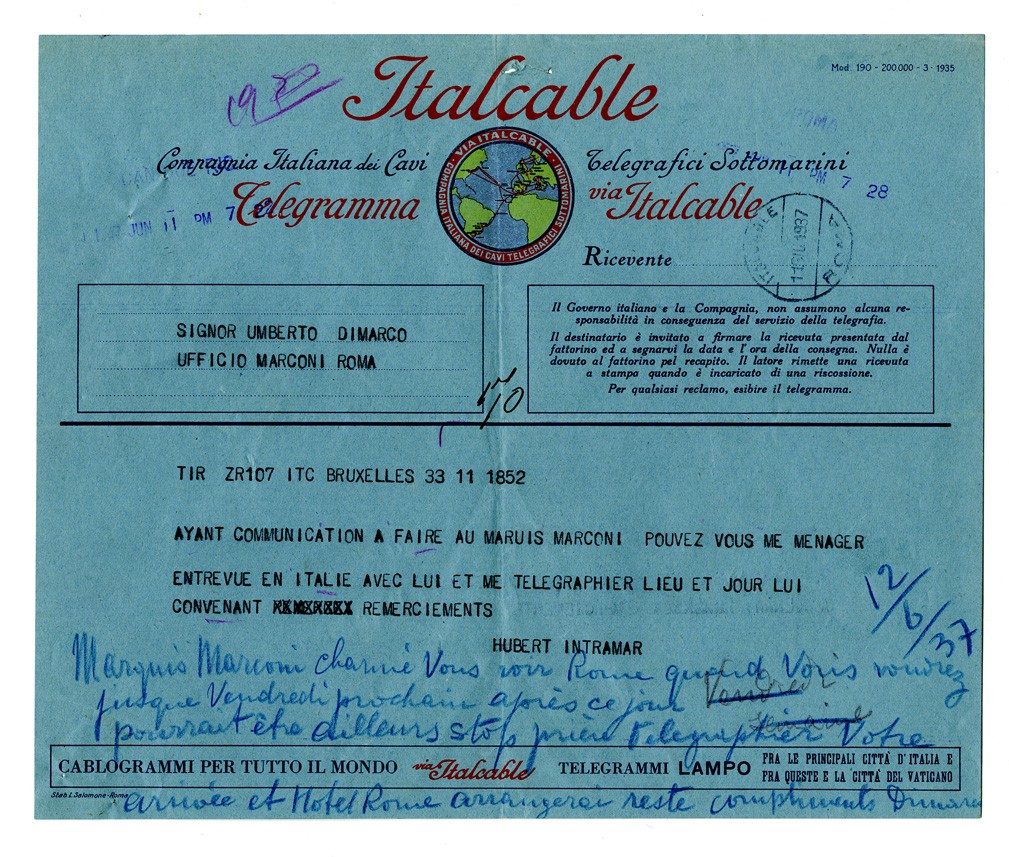 Mod. 190 - 200.000 - 3 - 1935
Italcable
Compagnia Italiana dei Cavi Telegrafici Sottomarini
VIA ITALCABLE · COMPAGNIA ITALIANA DEI CAVI TELEGRAFICI SOTTOMARINI ·
Telegramma via Italcable
JUN 11 PM 7
PM 7 28
ITALCABLE ROMA
1937
Ricevente
SIGNOR UMBERTO DIMARCO
UFFICIO MARCONI ROMA
Il Governo italiano e la Compagnia, non assumono alcuna re-
sponsabilità in conseguenza del servizio della telegrafia.
Il destinatario è invitato a firmare la ricevuta presentata dal
fattorino ed a segnarvi la data e l'ora della consegna. Nulla è
dovuto al fattorino pel recapito. Il latore rimette una ricevuta
a stampa quando è incaricato di una riscossione.
Per qualsiasi reclamo, esibire il telegramma.
TIR ZR107 ITC BRUXELLES 33 11 1852
AYANT COMMUNICATION A FAIRE AU MARUIS MARCONI POUVEZ VOUS ME MENAGER
ENTREVUE EN ITALIE AVEC LUI ET ME TELEGRAPHIER LIEU ET JOUR LUI
CONVENANT REMERCIEMENTS
HUBERT INTRAMAR
12/6/37
Marquis Marconi charmé Vous voir Rome quand Vous voudrez
jusque Vendredi prochain après ce jour Vendredi
pourrait être ailleurs stop prière telegraphier Votre
CABLOGRAMMI PER TUTTO IL MONDO via Italcable TELEGRAMMI LAMPO FRA LE PRINCIPALI CITTÀ D'ITALIA E
FRA QUESTE E LA CITTÀ DEL VATICANO
Stab. L. Salomone - Roma
arrivée et Hotel Rome arrangerai reste compliments Dimarco